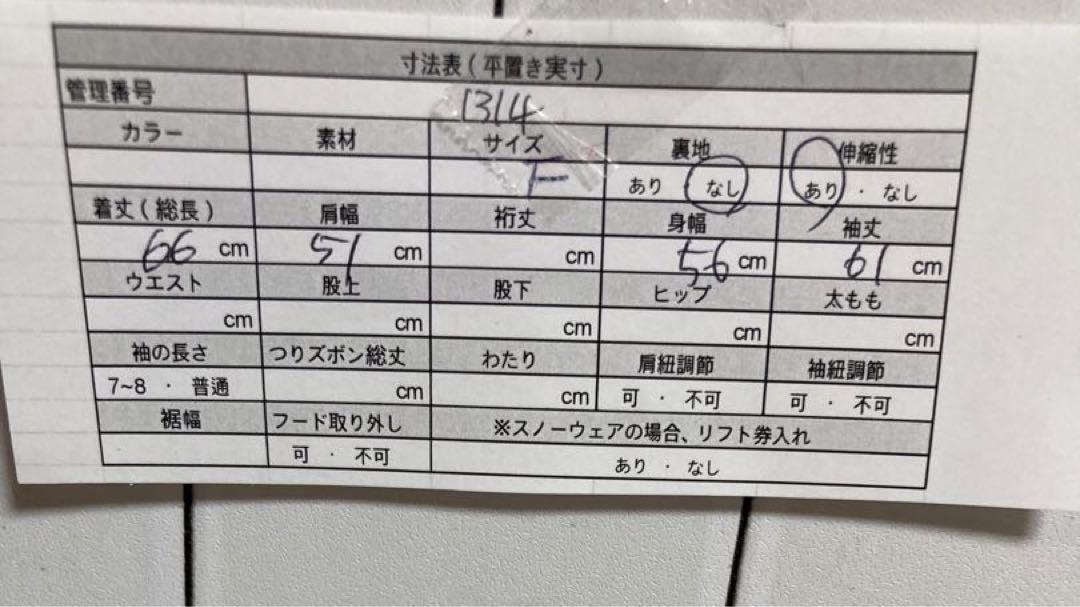 寸法表(平置き実寸)
管理番号 1314
カラー 素材 サイズ 裏地 伸縮性
F あり なし あり ・ なし
着丈(総長) 肩幅 裄丈 身幅 袖丈
66 cm 51 cm cm 56 cm 61 cm
ウエスト 股上 股下 ヒップ 太もも
cm cm cm cm cm
袖の長さ つりズボン総丈 わたり 肩紐調節 袖紐調節
7~8 ・ 普通 cm cm 可 ・ 不可 可 ・ 不可
裾幅 フード取り外し ※スノーウェアの場合、リフト券入れ
可 ・ 不可 あり ・ なし